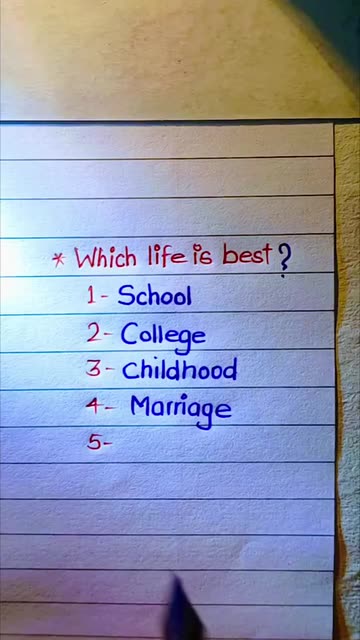 * Which life is best?
1- School
2- College
3- Childhood
4- Marriage
5-